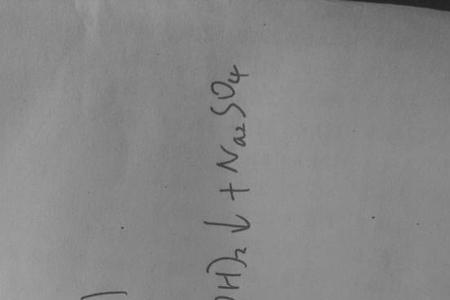 OH)₂ ↓ + Na₂SO₄